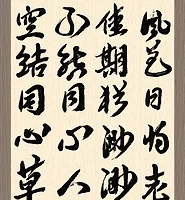 風花日将老
佳期猶渺渺
不結同心人
空結同心草